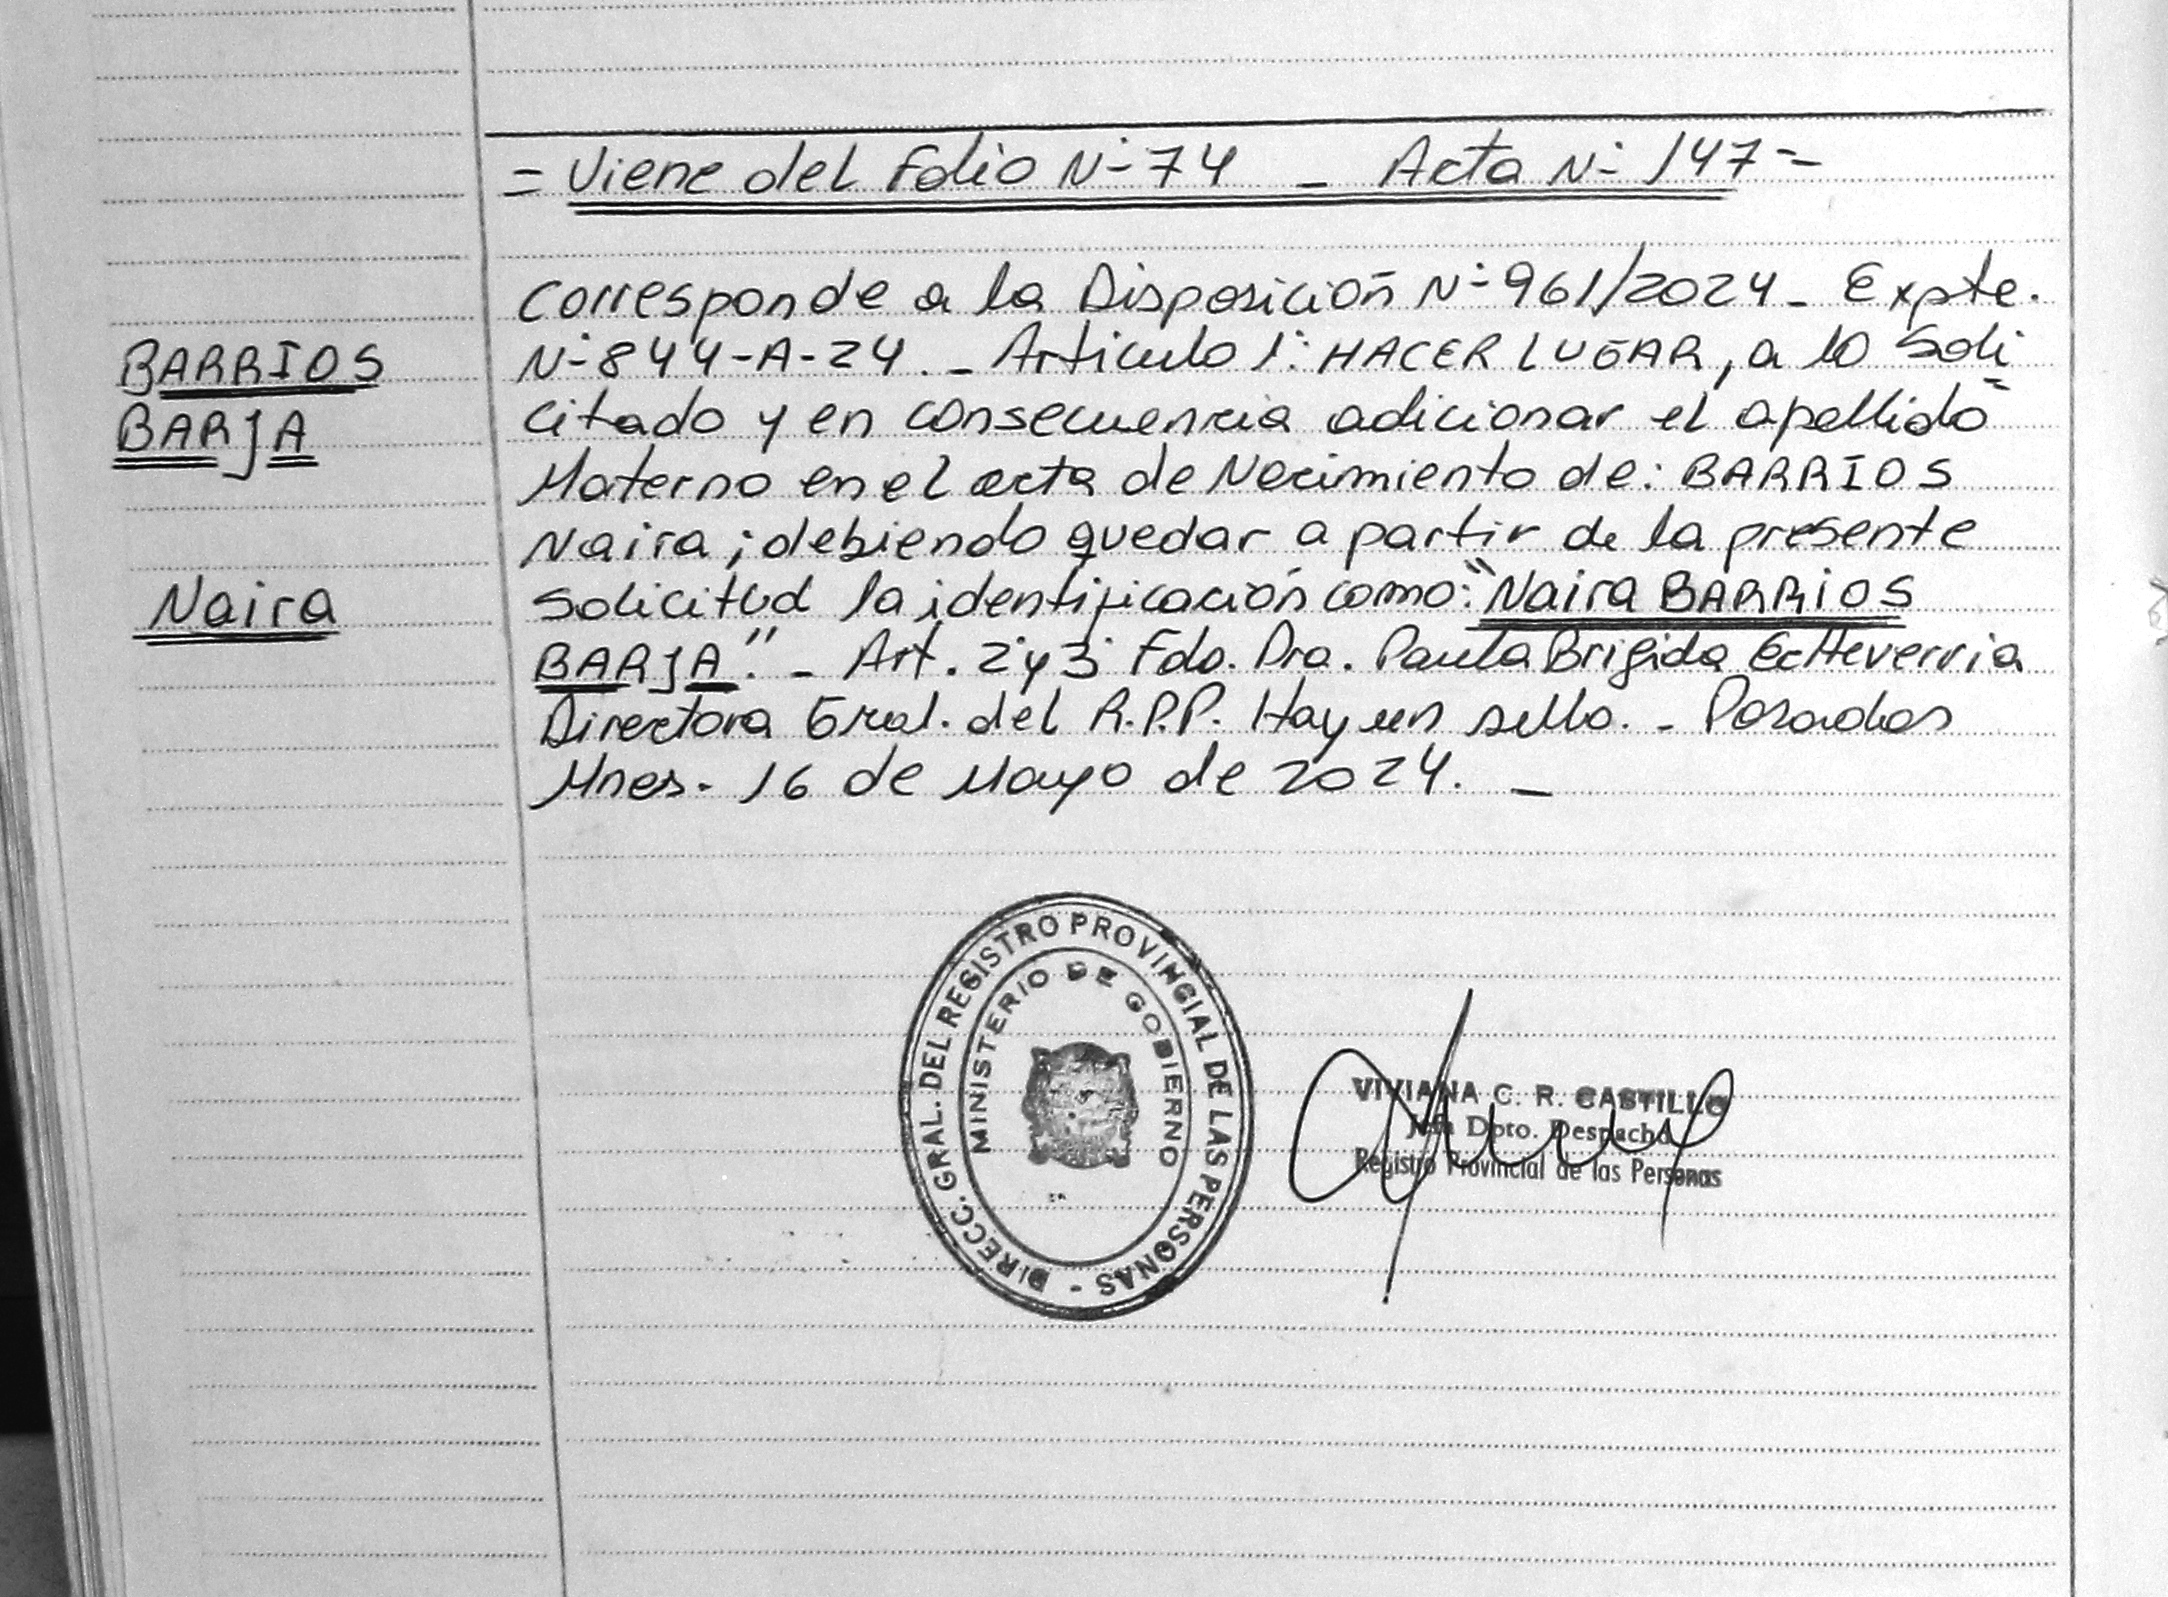 = Viene del Folio N° 74 - Acta N° 147 =
Corresponde a la Disposición N° 961/2024 - Expte.
N° 844-A-24. - Articulo 1°: HACER LUGAR, a lo Soli=
citado y en consecuencia adicionar el apellido
Materno en el acta de Nacimiento de: BARRIOS
Naira; debiendo quedar a partir de la presente
solicitud la identificación como: "Naira BARRIOS
BARJA". - Art. 2° y 3° Fdo. Dra. Paula Brigida Echeverria
Directora Gral. del R.P.P. Hay un sello. - Posadas
Mnes. 16 de Mayo de 2024. -
BARRIOS
BARJA
Naira
DIRECC. GRAL. DEL REGISTRO PROVINCIAL DE LAS PERSONAS -
MINISTERIO DE GOBIERNO
VIVIANA C. R. CASTILLO
Jefa Dpto. Despacho
Registro Provincial de las Personas